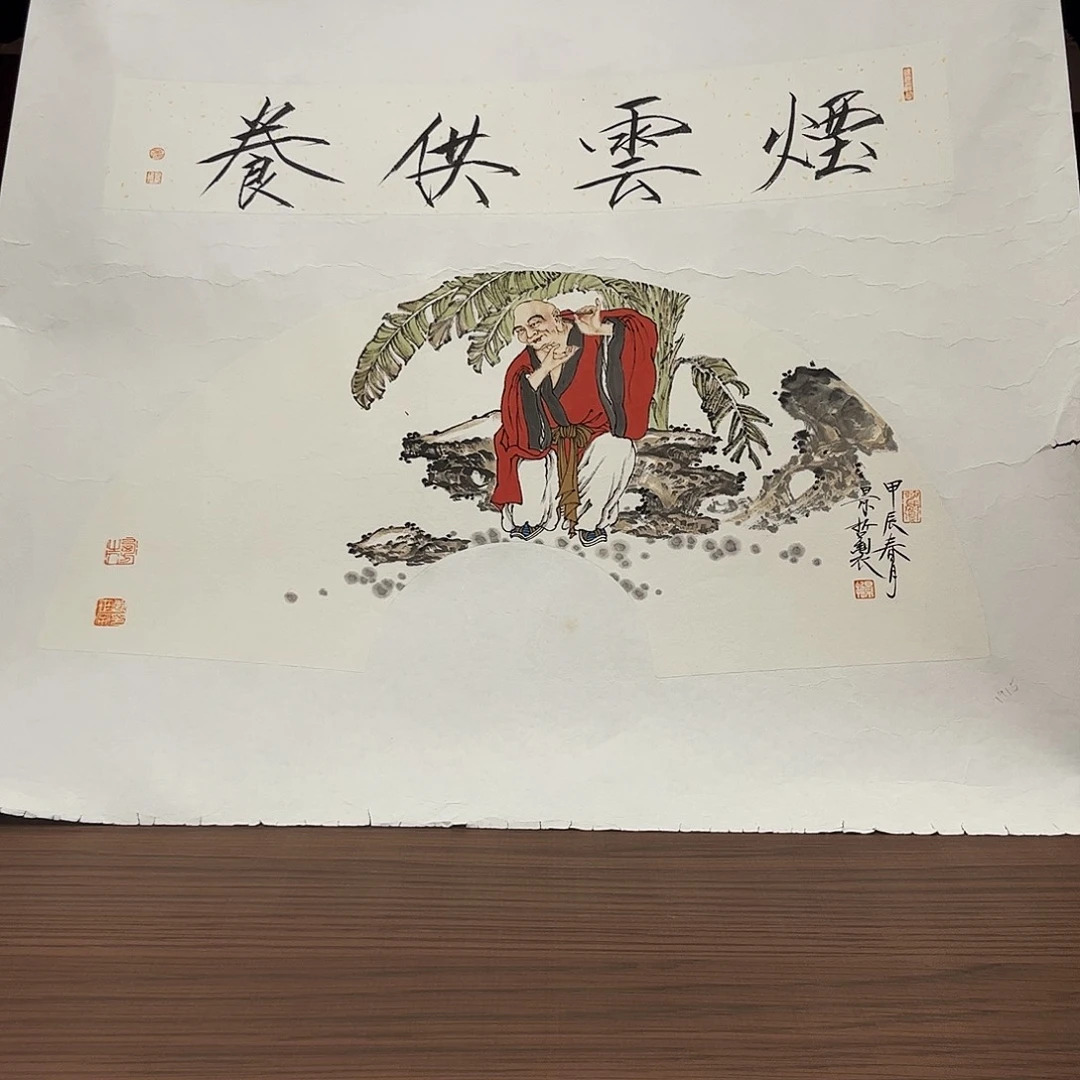 煙雲供養
甲辰春月
景哲製